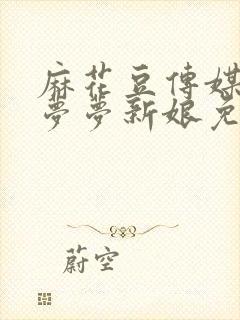 麻花豆傳媒
夢夢新娘免
蔚空